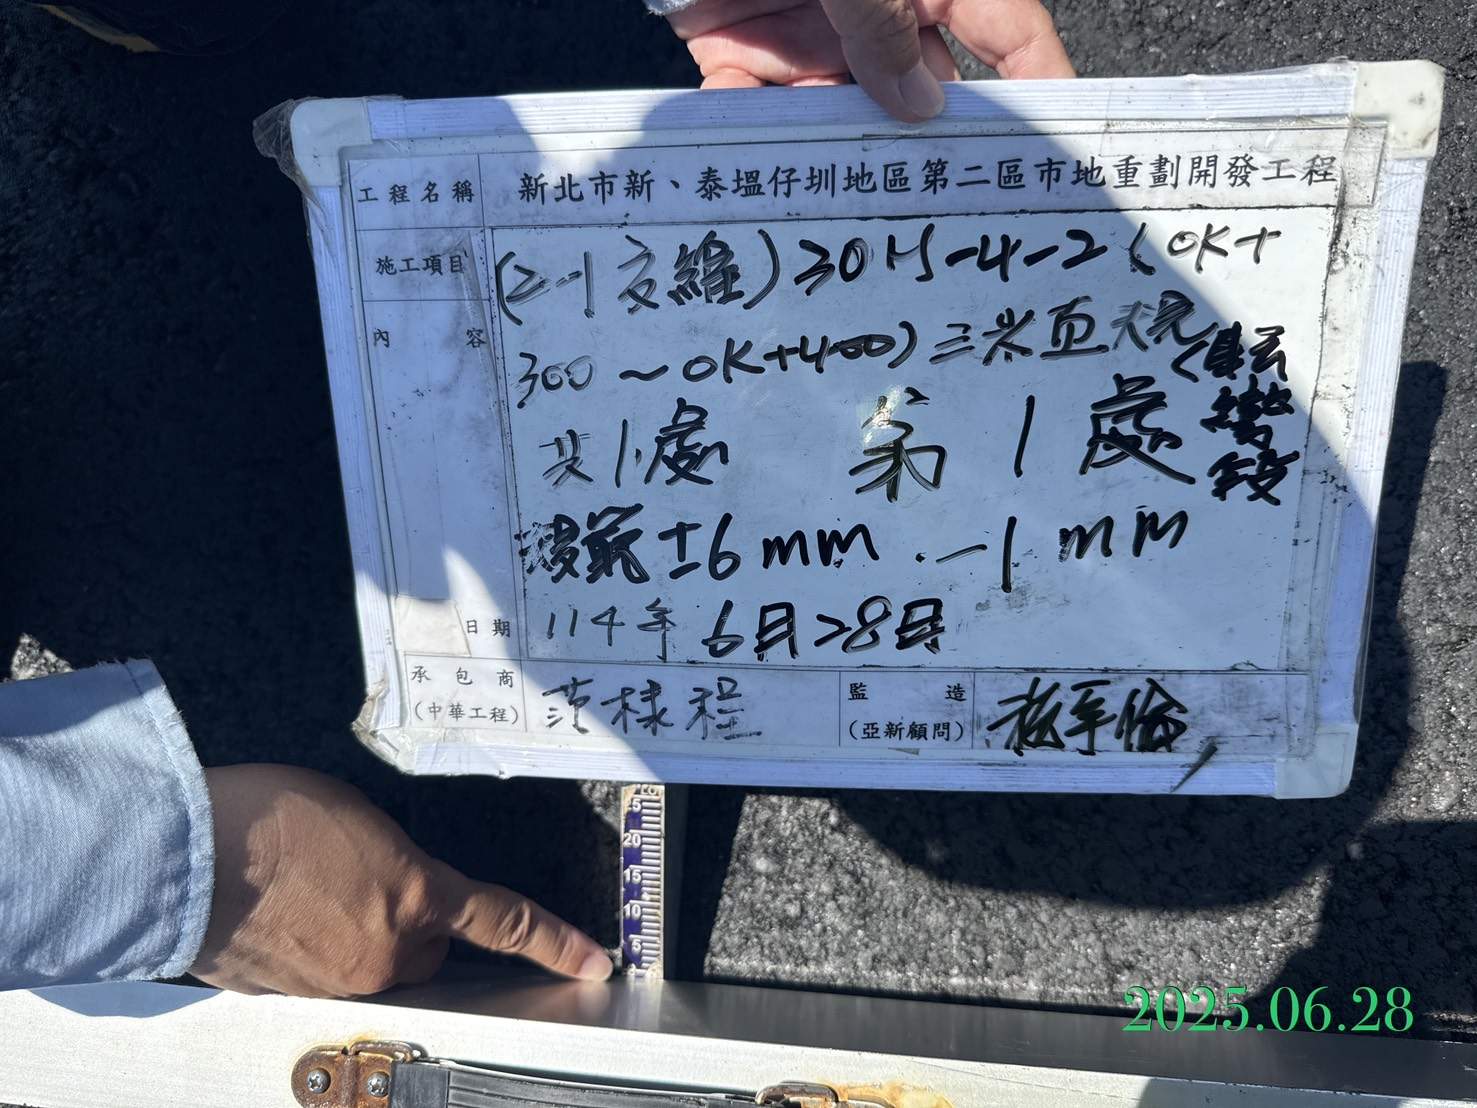 工程名稱 新北市新、泰塭仔圳地區第二區市地重劃開發工程
施工項目 (2-1支線)30M-4-2(0K+
內容 300~0K+400)三米直規(轉
共1處 第1處 彎段
±6mm -1mm
日期 114年6月28日
承包商 (中華工程) 范棣程
監造 (亞新顧問)
25
20
15
10
5
2025.06.28